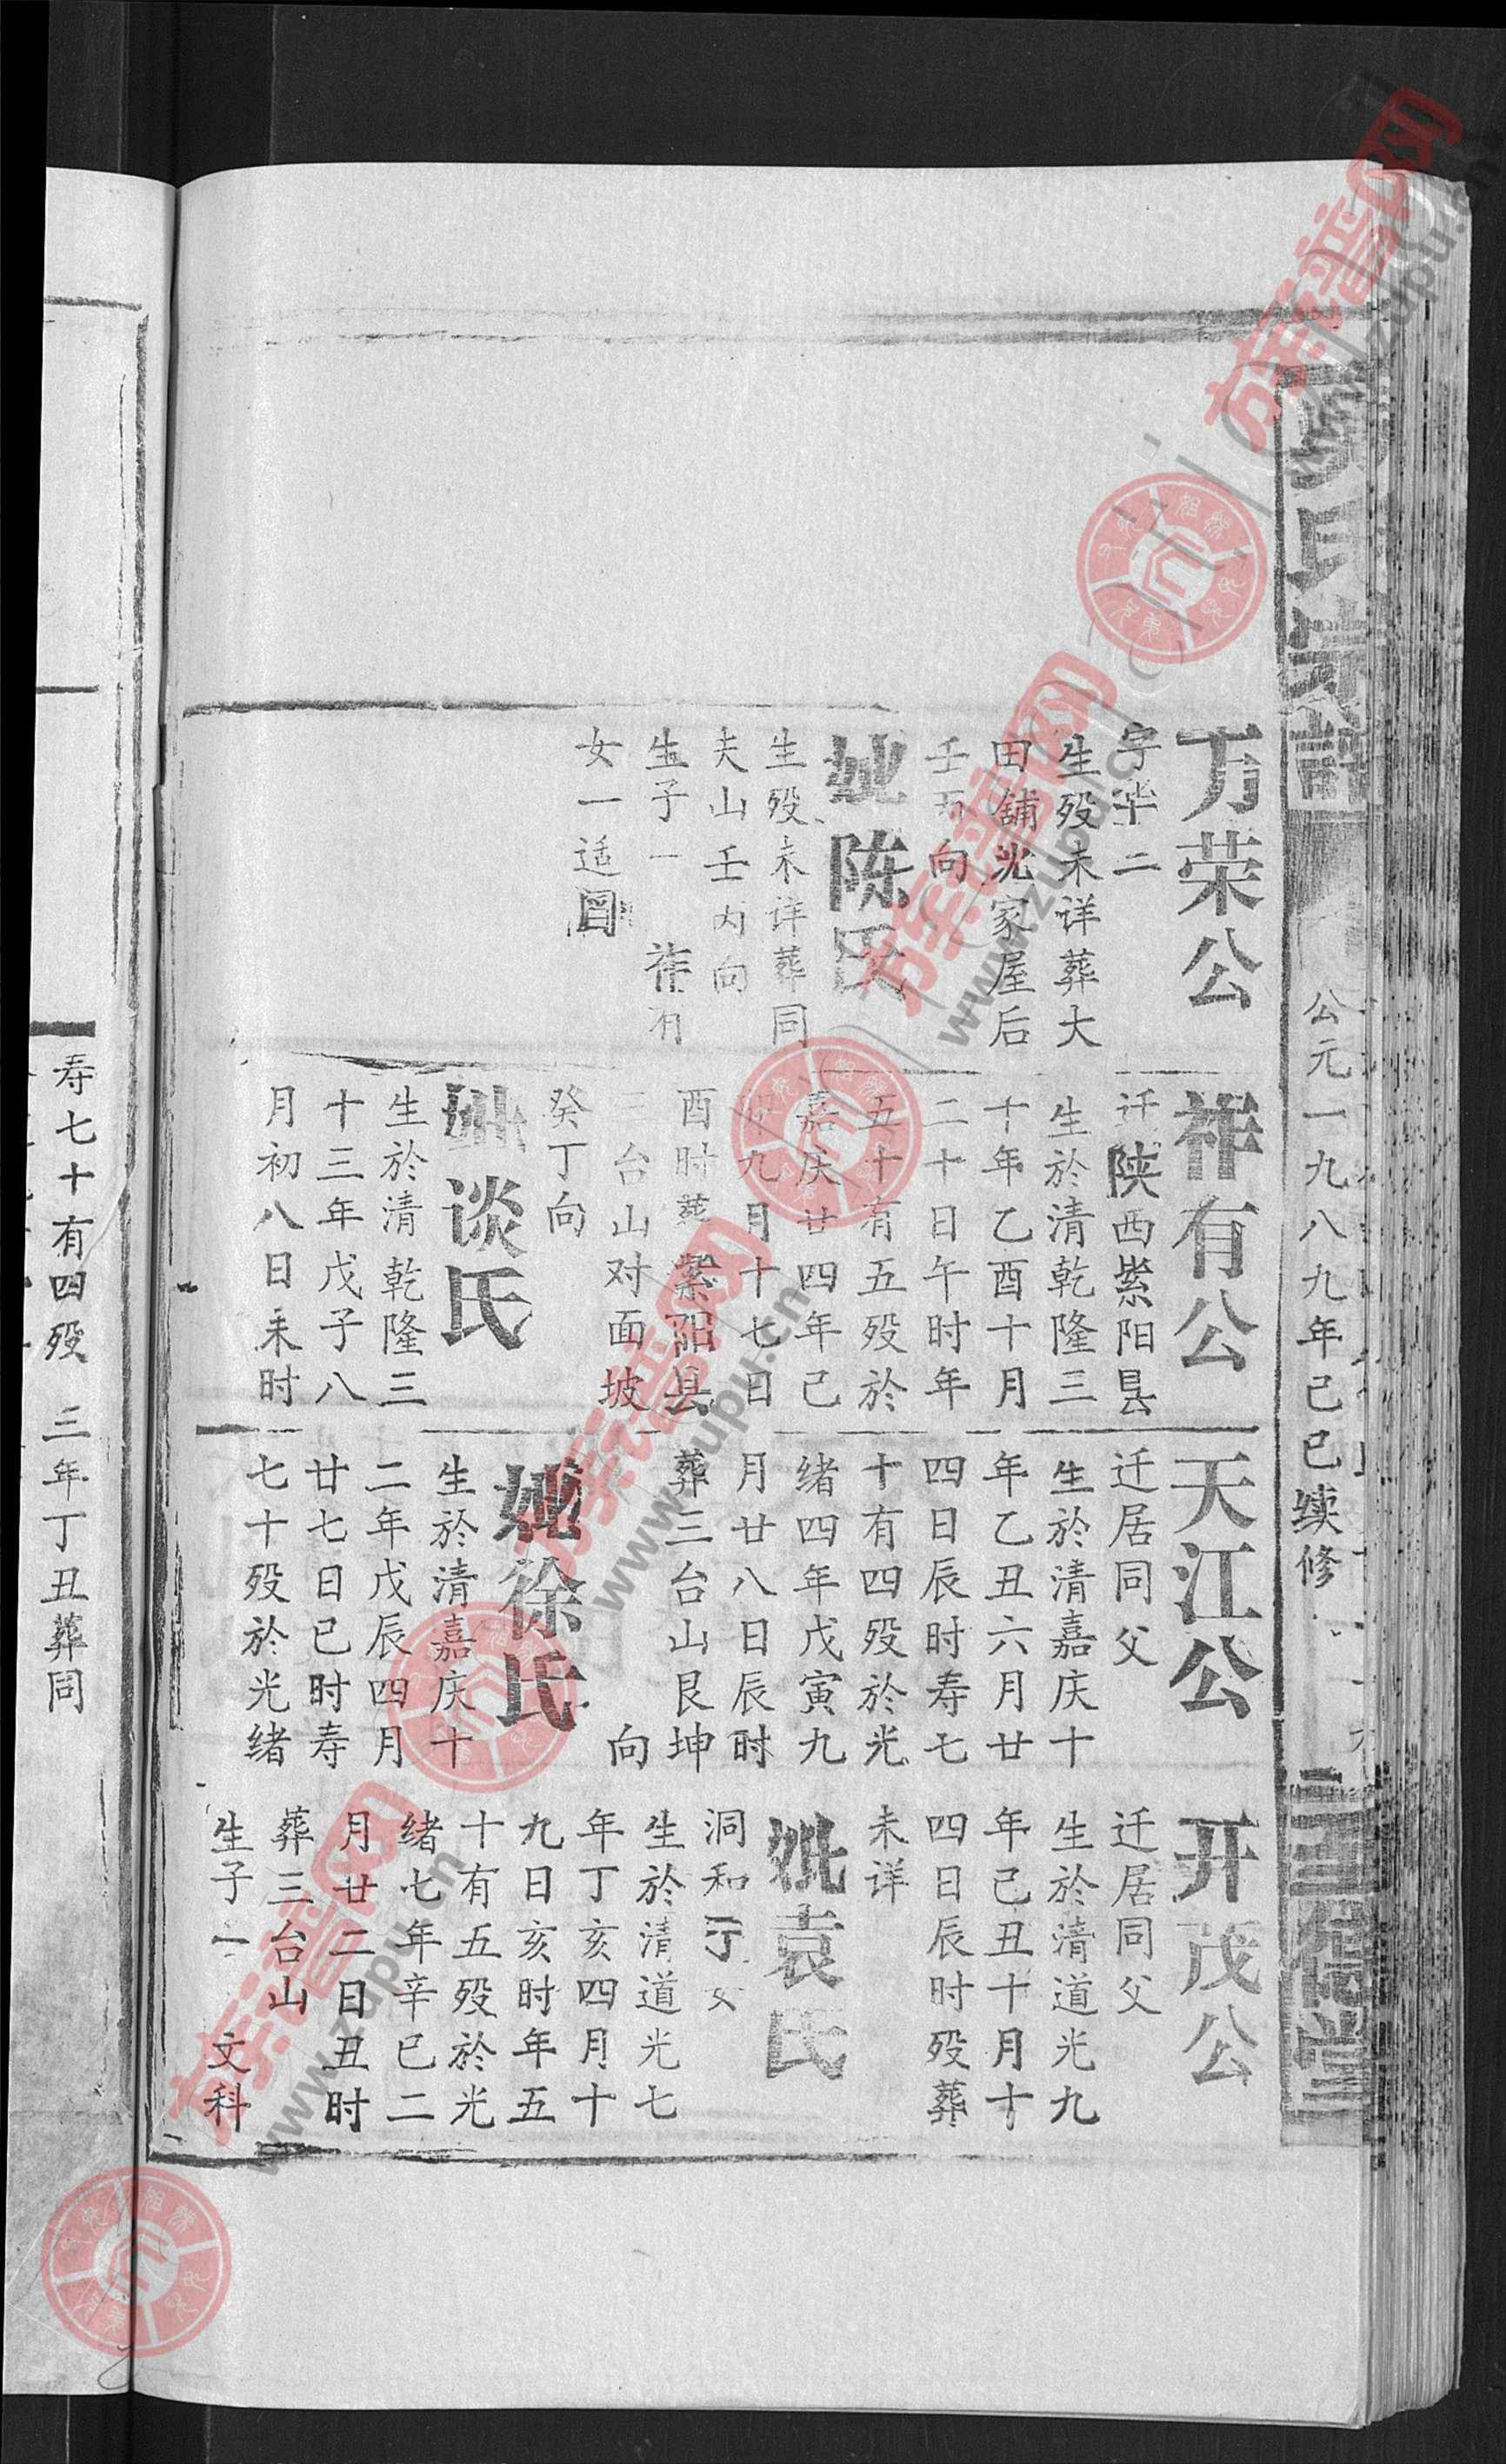 公元一九八九年己巳续修
万荣公
生殁未详葬大
田铺光家屋后
壬丙向
妣陈氏
生殁未详葬同
夫山壬丙向
生子一 祚有
女一适
祚有公
迁陕西紫阳县
生於清乾隆三
十年乙酉十月
二十日午时年
五十有五殁於
嘉庆廿四年己
九月十七日
酉时葬紫阳县
三台山对面坡
癸丁向
妣谈氏
生於清乾隆三
十三年戊子八
月初八日未时
天江公
迁居同父
生於清嘉庆十
年乙丑六月廿
四日辰时寿七
十有四殁於光
绪四年戊寅九
月廿八日辰时
葬三台山艮坤
向
妣徐氏
生於清嘉庆十
二年戊辰四月
廿七日巳时寿
七十殁於光绪
开茂公
迁居同父
生於清道光九
年己丑十月十
四日辰时殁葬
未详
妣袁氏
洞和 女
生於清道光七
年丁亥四月十
九日亥时年五
十有五殁於光
绪七年辛巳二
月廿二日丑时
葬三台山
生子一 文科
寿七十有四殁
三年丁丑葬同
族谱网
www.zupu.cn